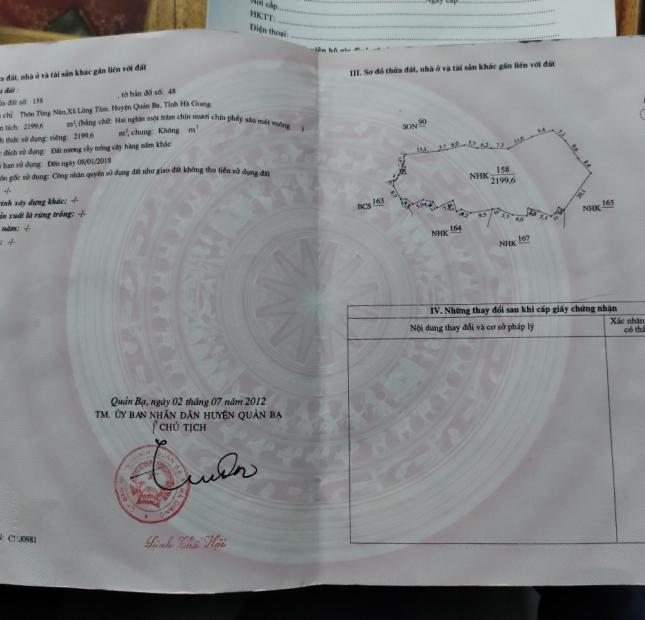 Nơi cấp
HKTT:
Điện thoại:
đất, nhà ở và tài sản khác gắn liền với đất
đất:
đất số: 158 , tờ bản đồ số: 48
chỉ: Thôn Tùng Nùn, Xã Lùng Tám, Huyện Quản Bạ, Tỉnh Hà Giang
tích: 2199,6 m², (bằng chữ: Hai nghìn một trăm chín mươi chín phẩy sáu mét vuông )
thức sử dụng: riêng: 2199,6 m², chung: Không m²
đích sử dụng: Đất nương rẫy trồng cây hàng năm khác
hạn sử dụng: Đến ngày 08/01/2018
gốc sử dụng: Công nhận quyền sử dụng đất như giao đất không thu tiền sử dụng đất
-/-
xây dựng khác: -/-
xuất là rừng trồng: -/-
năm: -/-
: -/-
Quản Bạ, ngày 02 tháng 07 năm 2012
TM. ỦY BAN NHÂN DÂN HUYỆN QUẢN BẠ
CHỦ TỊCH
III. Sơ đồ thửa đất, nhà ở và tài sản khác gắn liền với đất
SON 90
NHK 158
2199,6
BCS 163
NHK 164
NHK 167
NHK 165
IV. Những thay đổi sau khi cấp giấy chứng nhận
Nội dung thay đổi và cơ sở pháp lý
Xác nhận
có th